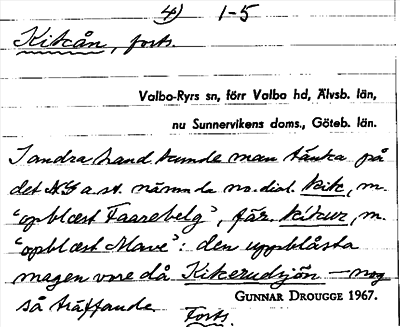 4) 1-5
Kikån, forts.
Valbo-Ryrs sn, förr Valbo hd, Älvsb. län,
nu Sunnervikens doms., Göteb. län.
I andra hand kunde man tänka på
det NG a. st. nämnda no. dial. kik, m.
"opblæst Faarebelg", fär. kikur, m.
"opblæst Mave": den uppblåsta
magen vore då Kikerudsjön – nog
så träffande.
GUNNAR DROUGGE 1967.
Forts.